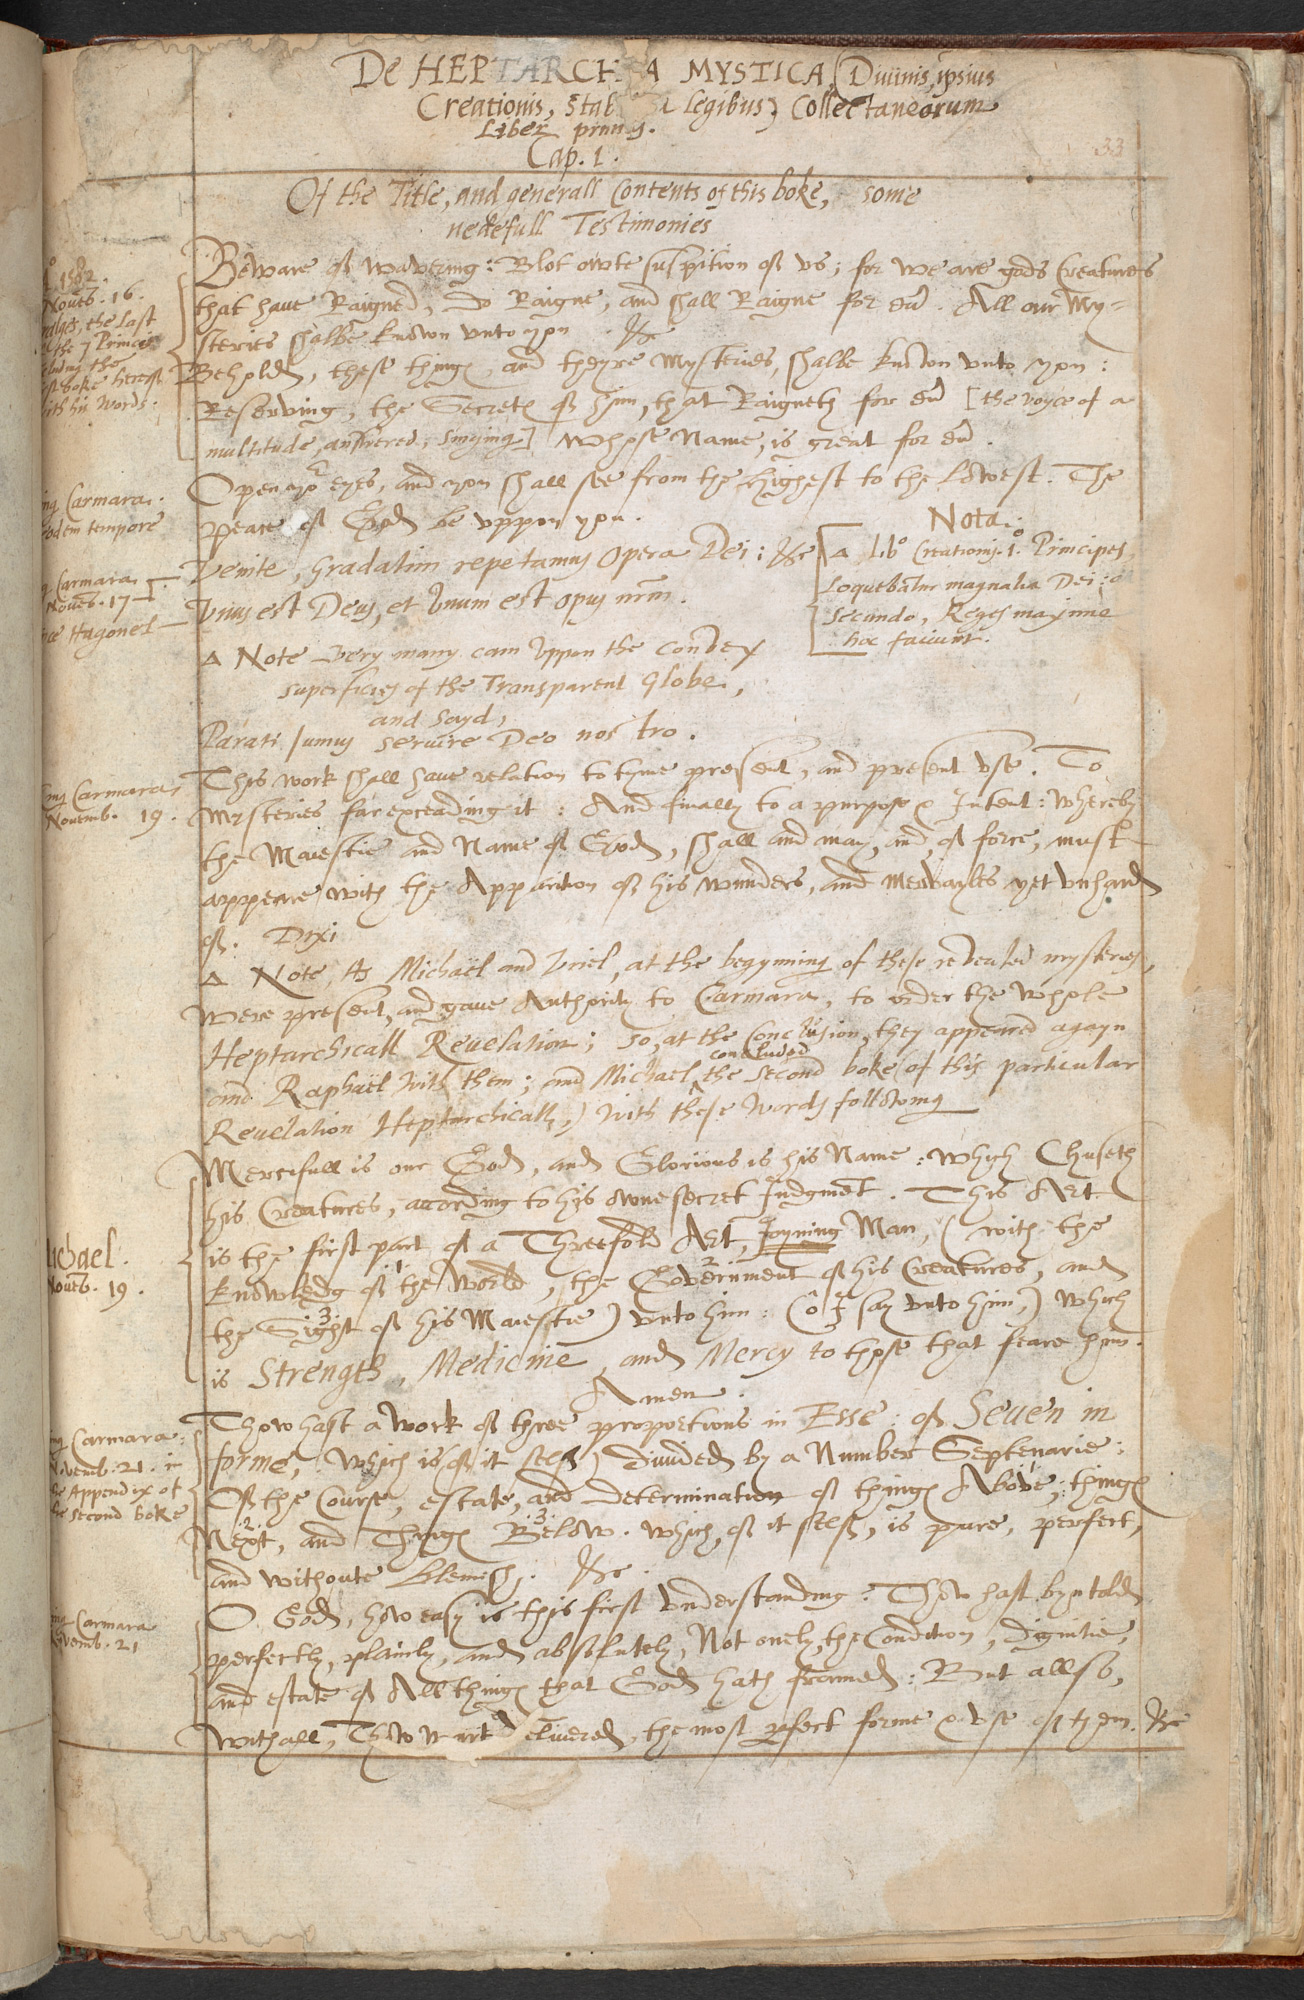 De HEPTARCHIA MYSTICA, (Diuinis, ipsius
Creationis, stab legibus,) Collectaneorum
Liber primus.
Cap. 1.
33
Of the Title, and generall Contents of this boke, some
nedefull Testimonies
Ao. 1582.
Nouēb. 16.
the last
of the 7 Princes
the
boke herof
with his words.
Beware of wavering: Blot owte suspition of vs; for we are gods Creatures
that haue Raigned, do Raigne, and shall Raigne for eūr. All our My=
steries shalbe known vnto yon. &c
Behold, these things, and theyre Mysteries, shalbe known vnto yon:
Reserving, the Secrets of him, that Raigneth for eūr [the voyce of a
multitude, answered, singing] Whose Name, is great for eūr.
Carmara.
eodem tempore
Open yor eyes, and you shall see from the Highest to the Lowest. The
peace of God be vppon yon.
Carmara
Nouēb. 17
Hagonel
Venite, Gradatim repetamus Opera Dei: &c
Vnus est Deus, et Vnum est opus nr̄m.
Nota:
Δ Libo Creationis. 1.o Principes,
Loquebantur magnalia Dei: o
secundo, Reges maxime
hoc faciunt.
Δ Note very many cam vppon the convex
superficies of the Transparent Globe,
and sayd,
Parati sumus servire Deo nostro.
Carmara,
Novemb. 19.
This work shall haue relation to tyme present, and present vse. To
Mysteries far exceading it: And finally to a purpose & Intent: Whereby
the Maiestie and Name of God, shall and may, and, of force, must
appeare with the Apparition of his wunders, and mervayles yet vnhard
of. Dixi
Δ Note, As Michaël and Vriel, at the begynning of these revealed mysteries,
were present, and gaue Authority to Carmara, to order the whole
Heptarchicall Reuelation; so, at the Conclusion, they appeared agayn
and Raphaël with them; and Michael concluded the second boke (of this particular
Reuelation Heptarchicall,) with these words following
Michael.
Nouēb. 19.
Mercifull is our God, and Glorious is his Name: Which Chuseth
his Creatures, according to his owne secret Iudgment. This Art
is the first part of a Threefold Art, Ioyning Man, (with the
knowledg of .1. the World, the .2. Government of his Creatures, and
the .3. Sight of his Maiestie) vnto him: (ô I say vnto him,) Which
is Strength, Medicine, and Mercy to those that feare him.
Amen.
Carmara:
Novemb. 21. in
the Appendix of
the second boke
Thow hast a work of three proportions in Esse: of Seuen in
forme, Which is (of it self) diuided by a Number Septenarie:
Of the Course, estate, and determination of things .1. Above, things
.2. Next, and Things .3. Below. which, of it self, is pure, perfect,
and withoute blemish. &c.
Carmara
Novemb. 21
O God, how easy is this first vnderstanding: Thow hast byn told
perfectly, plainly, and absolutely, Not onely, the Condition, dignitie,
and estate of All things that God hath framed: But allso,
withall, Thow wart deliuered, the most perfect forme & vse of them. &c